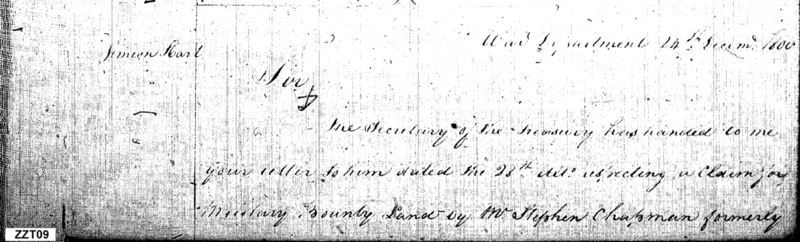 Simeon Hart
War Department 24th Decem. 1800
Sir
The Secretary of the Treasury has handed to me
your letter to him dated the 28th ulto respecting a Claim for
Military Bounty Land by Mr Stephen Chapman formerly
ZZT09